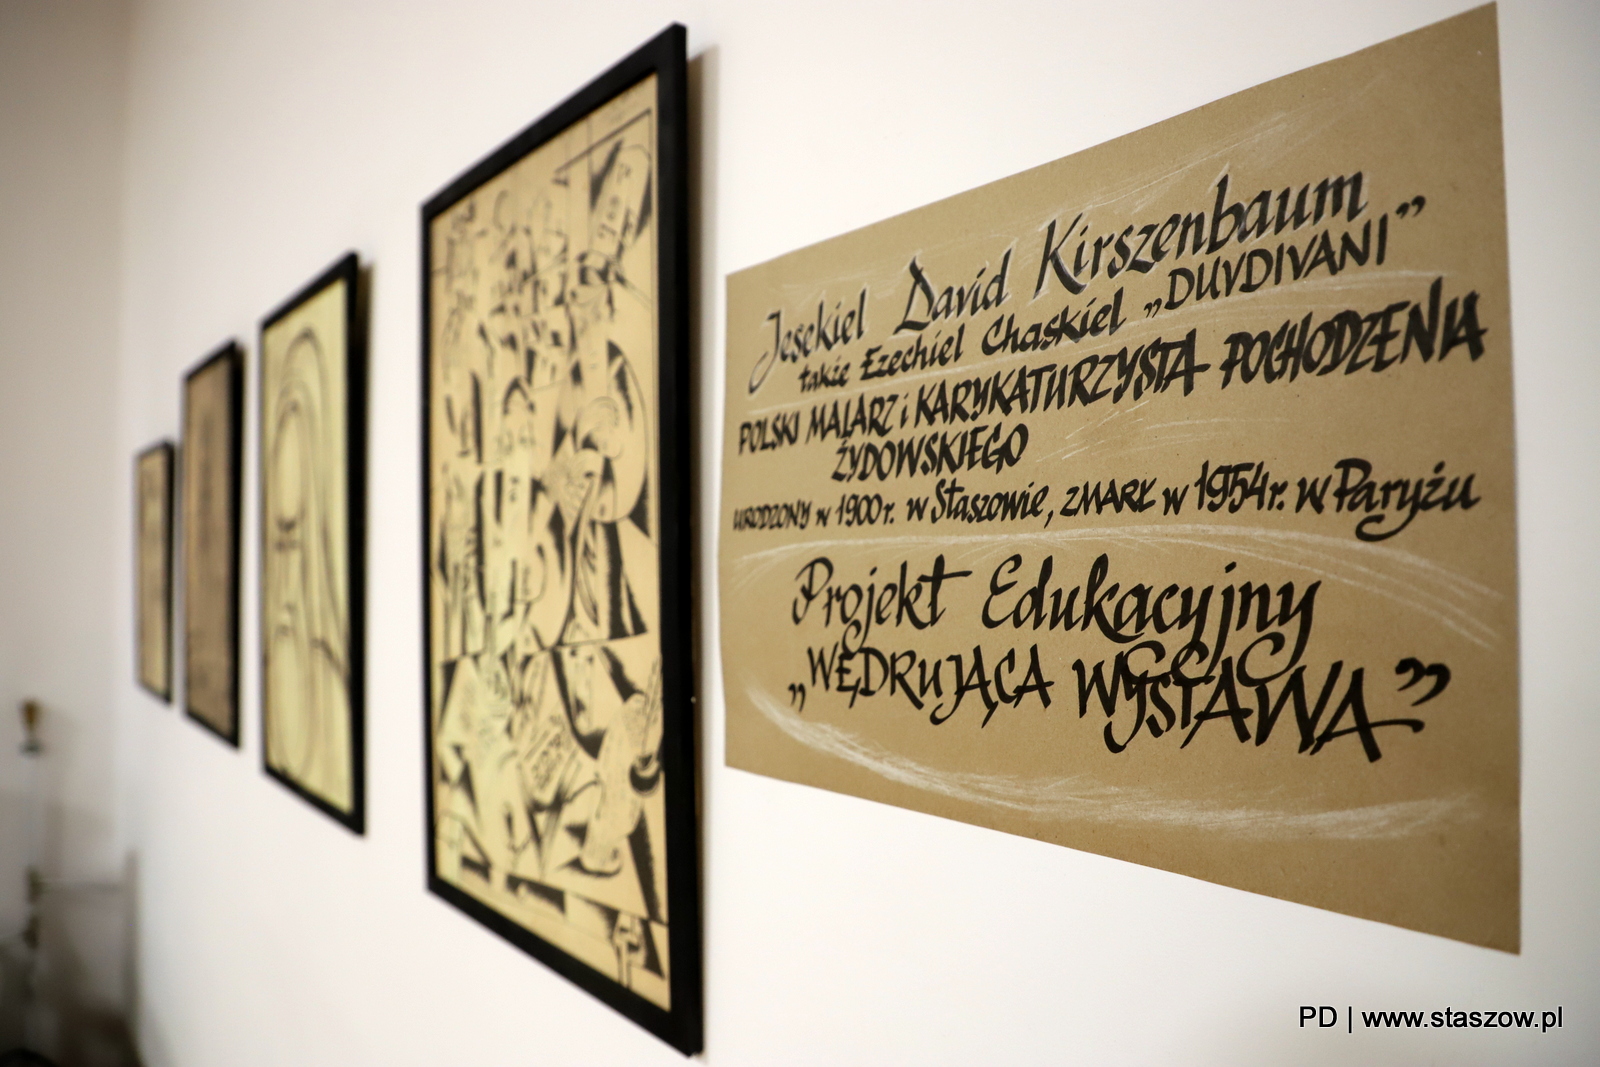 Jesekiel David Kirszenbaum
także Ezechiel Chaskiel „DUVDIVANI”
POLSKI MALARZ i KARYKATURZYSTA POCHODZENIA
ŻYDOWSKIEGO
URODZONY w 1900r. w Staszowie, ZMARŁ w 1954r. w Paryżu
Projekt Edukacyjny
„WĘDRUJĄCA WYSTAWA”
PD | www.staszow.pl